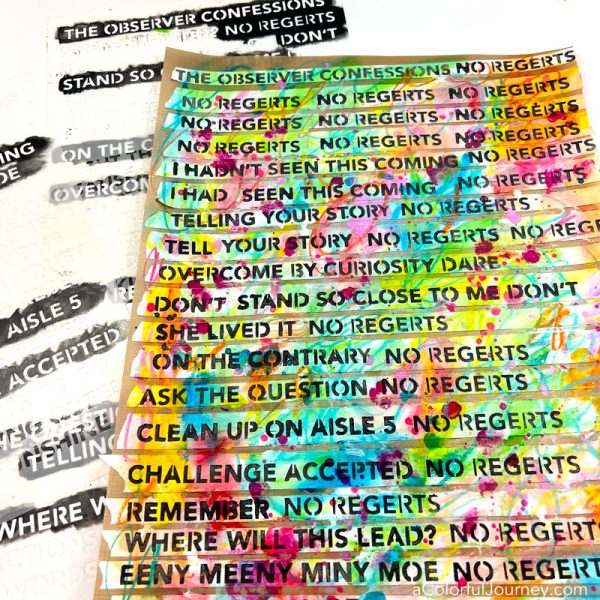 THE OBSERVER CONFESSIONS
NO REGERTS
DON'T
STAND SO
ON THE
OVERCOM
AISLE 5
ACCEPTED
TELLING
WHERE W
WORDS
THE OBSERVER CONFESSIONS NO REGERTS
NO REGERTS NO REGERTS NO REGERTS
NO REGERTS NO REGERTS NO REGERTS
NO REGERTS NO REGERTS NO REGERTS
I HADN'T SEEN THIS COMING NO REGERTS
I HAD SEEN THIS COMING NO REGERTS
TELLING YOUR STORY NO REGERTS
TELL YOUR STORY NO REGERTS NO REGERTS
OVERCOME BY CURIOSITY DARE
DON'T STAND SO CLOSE TO ME DON'T
SHE LIVED IT NO REGERTS
ON THE CONTRARY NO REGERTS
ASK THE QUESTION NO REGERTS
CLEAN UP ON AISLE 5 NO REGERTS
CHALLENGE ACCEPTED NO REGERTS
REMEMBER NO REGERTS
WHERE WILL THIS LEAD? NO REGERTS
EENY MEENY MINY MOE NO REGERT
aColorfulJourney.com